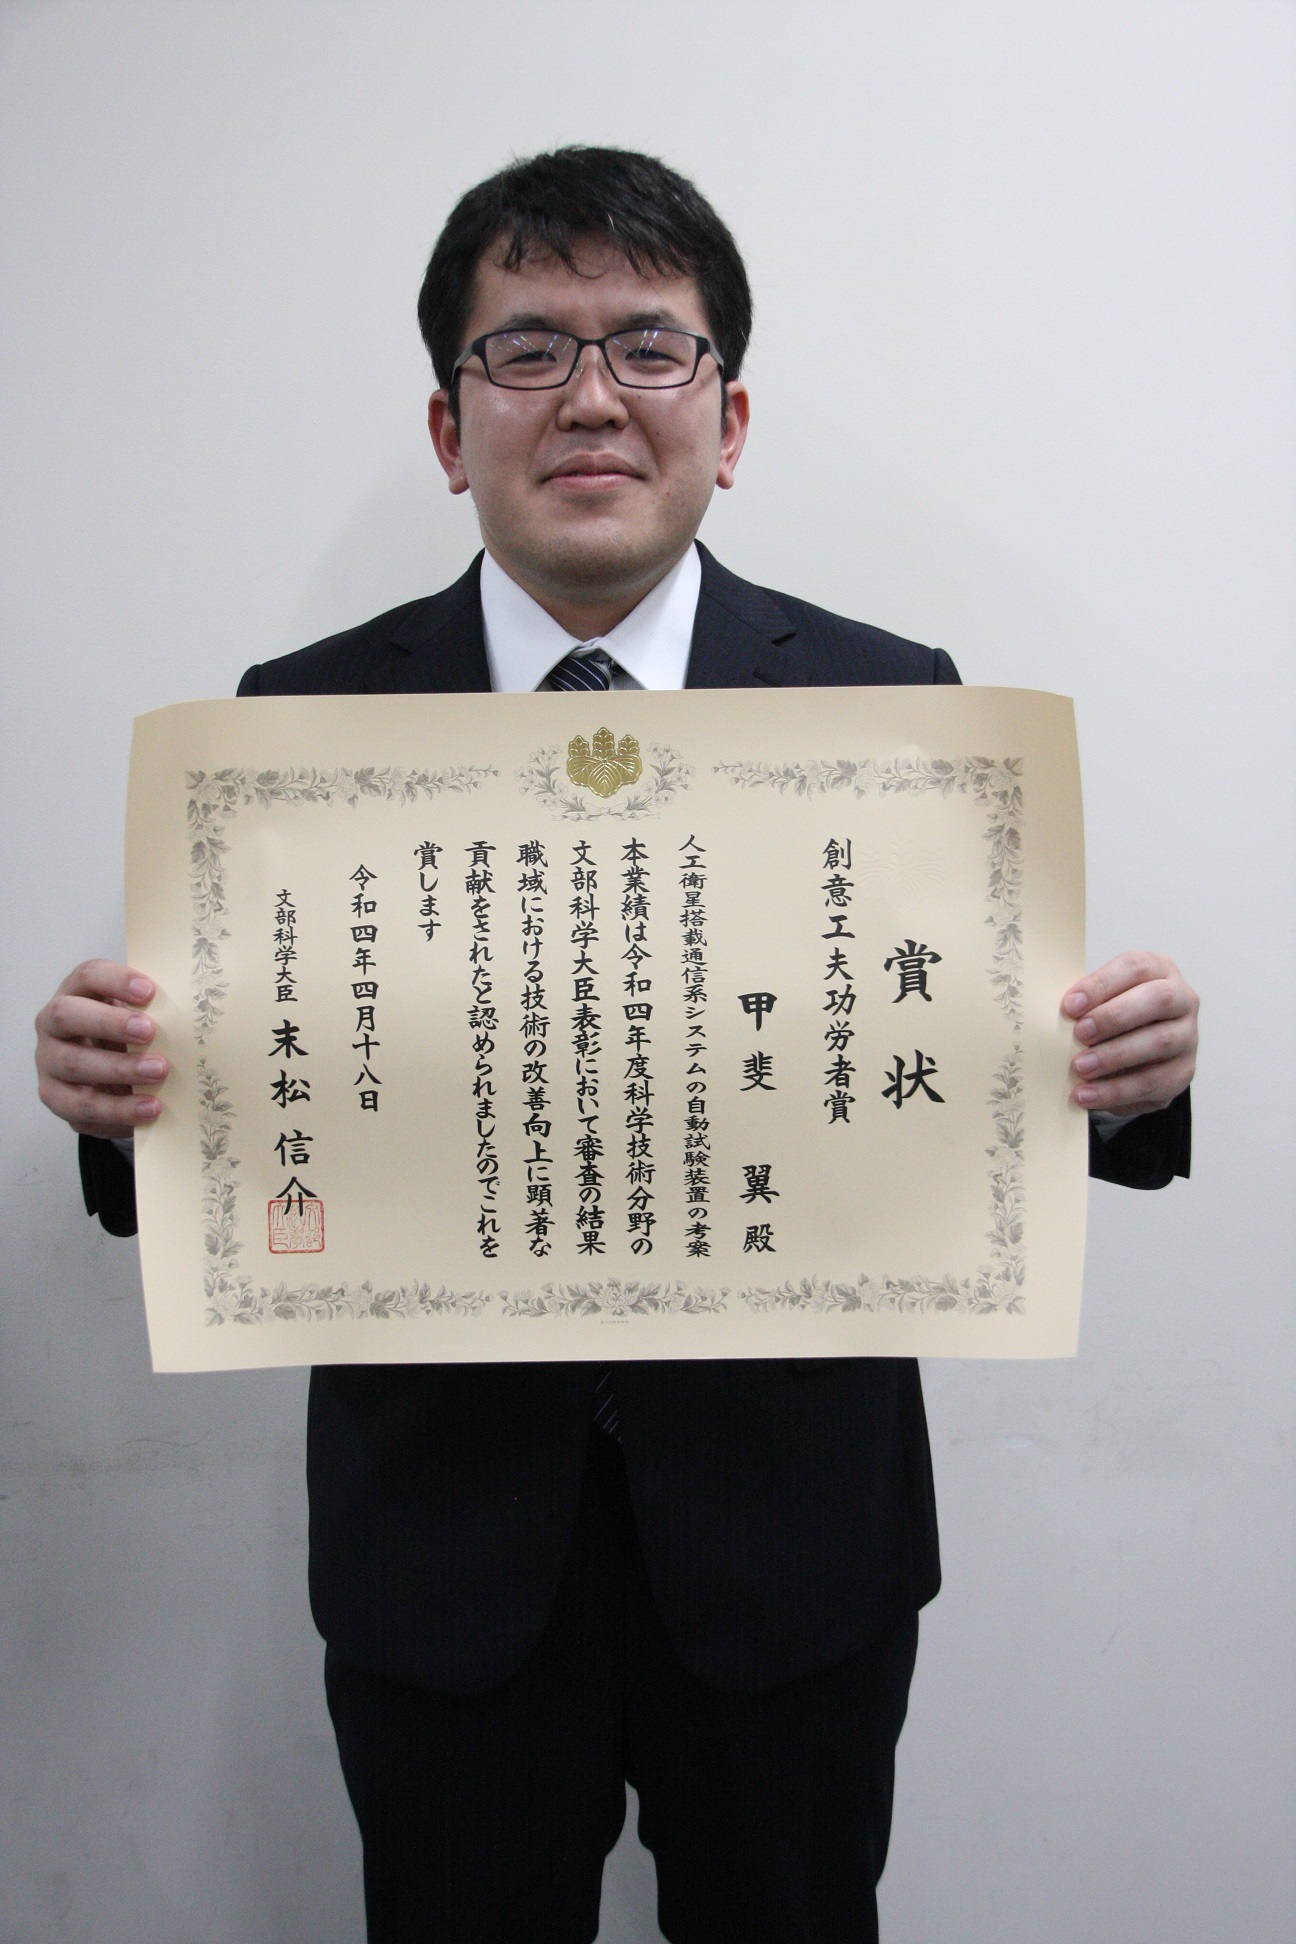 賞状
創意工夫功労者賞
甲斐 翼 殿
人工衛星搭載通信系システムの自動試験装置の考案
本業績は令和四年度科学技術分野の
文部科学大臣表彰において審査の結果
職域における技術の改善向上に顕著な
貢献をされたと認められましたのでこれを
賞します
令和四年四月十八日
文部科学大臣 末松信介